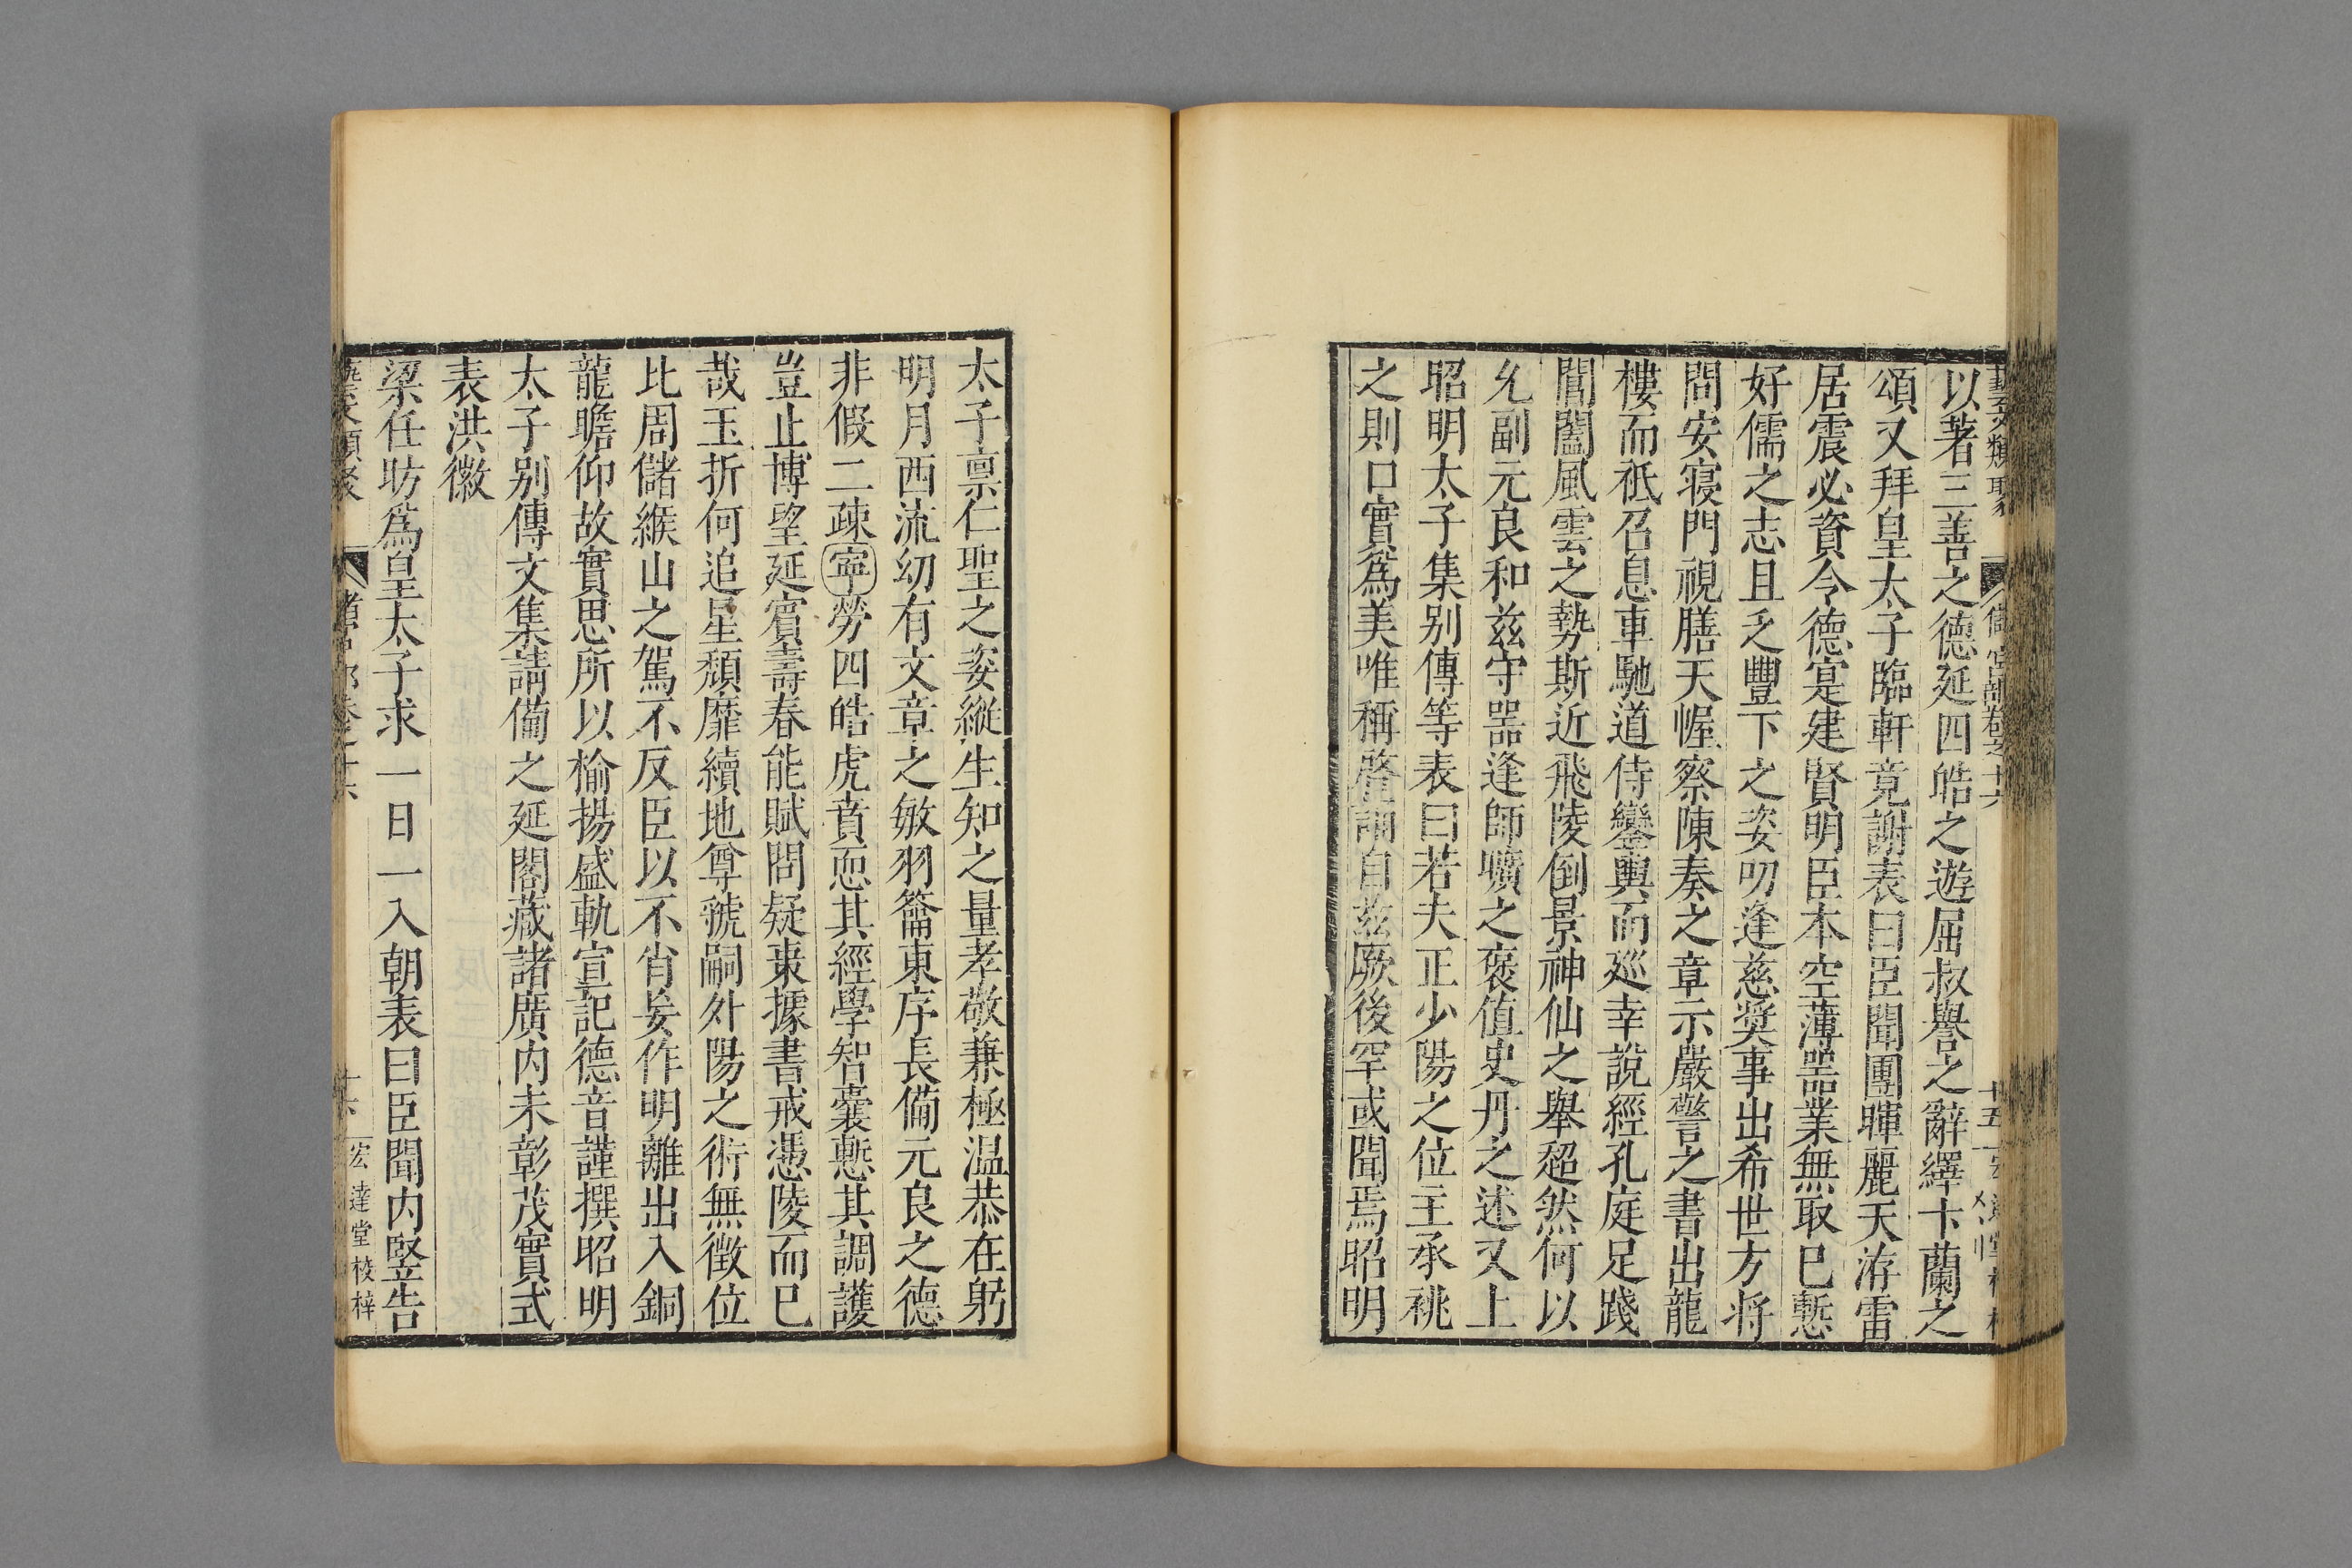 藝文類聚 儲宮部卷之十六 十五
以著三善之德延四皓之遊屈叔譽之辭繹卞蘭之
頌又拜皇太子臨軒竟謝表曰臣聞團暉麗天洊雷
居震必資令德寔建賢明臣本空薄器業無取已慙
好儒之志且乏豐下之姿叨逢慈奬事出希世方將
問安寢門視膳天幄察陳奏之章示嚴警之書出龍
樓而祗召息車馳道侍鑾輿而廵幸說經孔庭足踐
閶闔風雲之勢斯近飛陵倒景神仙之舉超然何以
允副元良和兹守器逢師曠之褒值史丹之述又上
昭明太子集别傳等表曰若夫正少陽之位主承祧
之則口實爲美唯稱啓誦自兹厥後罕或聞焉昭明
太子稟仁聖之姿縱生知之量孝敬兼極温恭在躬
明月西流幼有文章之敏羽籥東序長備元良之德
非假二疎寧勞四皓虎賁恧其經學智囊慙其調護
豈止博望延賓壽春能賦問疑棗據書戒憑陵而已
哉玉折何追星頹靡續地尊號嗣外陽之術無徴位
比周儲緱山之駕不反臣以不肖妄作明離出入銅
龍瞻仰故實思所以揄揚盛軌宣記德音謹撰昭明
太子别傳文集請備之延閣藏諸廣内未彰茂實式
表洪徽
梁任昉爲皇太子求一日一入朝表曰臣聞内竪告
藝文類聚 儲宮部卷之十六 十六 宏達堂校梓